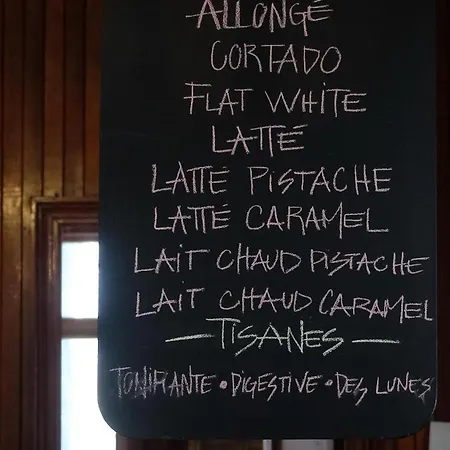 ALLONGÉ
CORTADO
FLAT WHITE
LATTÉ
LATTÉ PISTACHE
LATTÉ CARAMEL
LAIT CHAUD PISTACHE
LAIT CHAUD CARAMEL
— TISANES —
TONIFIANTE • DIGESTIVE • DES LUNES